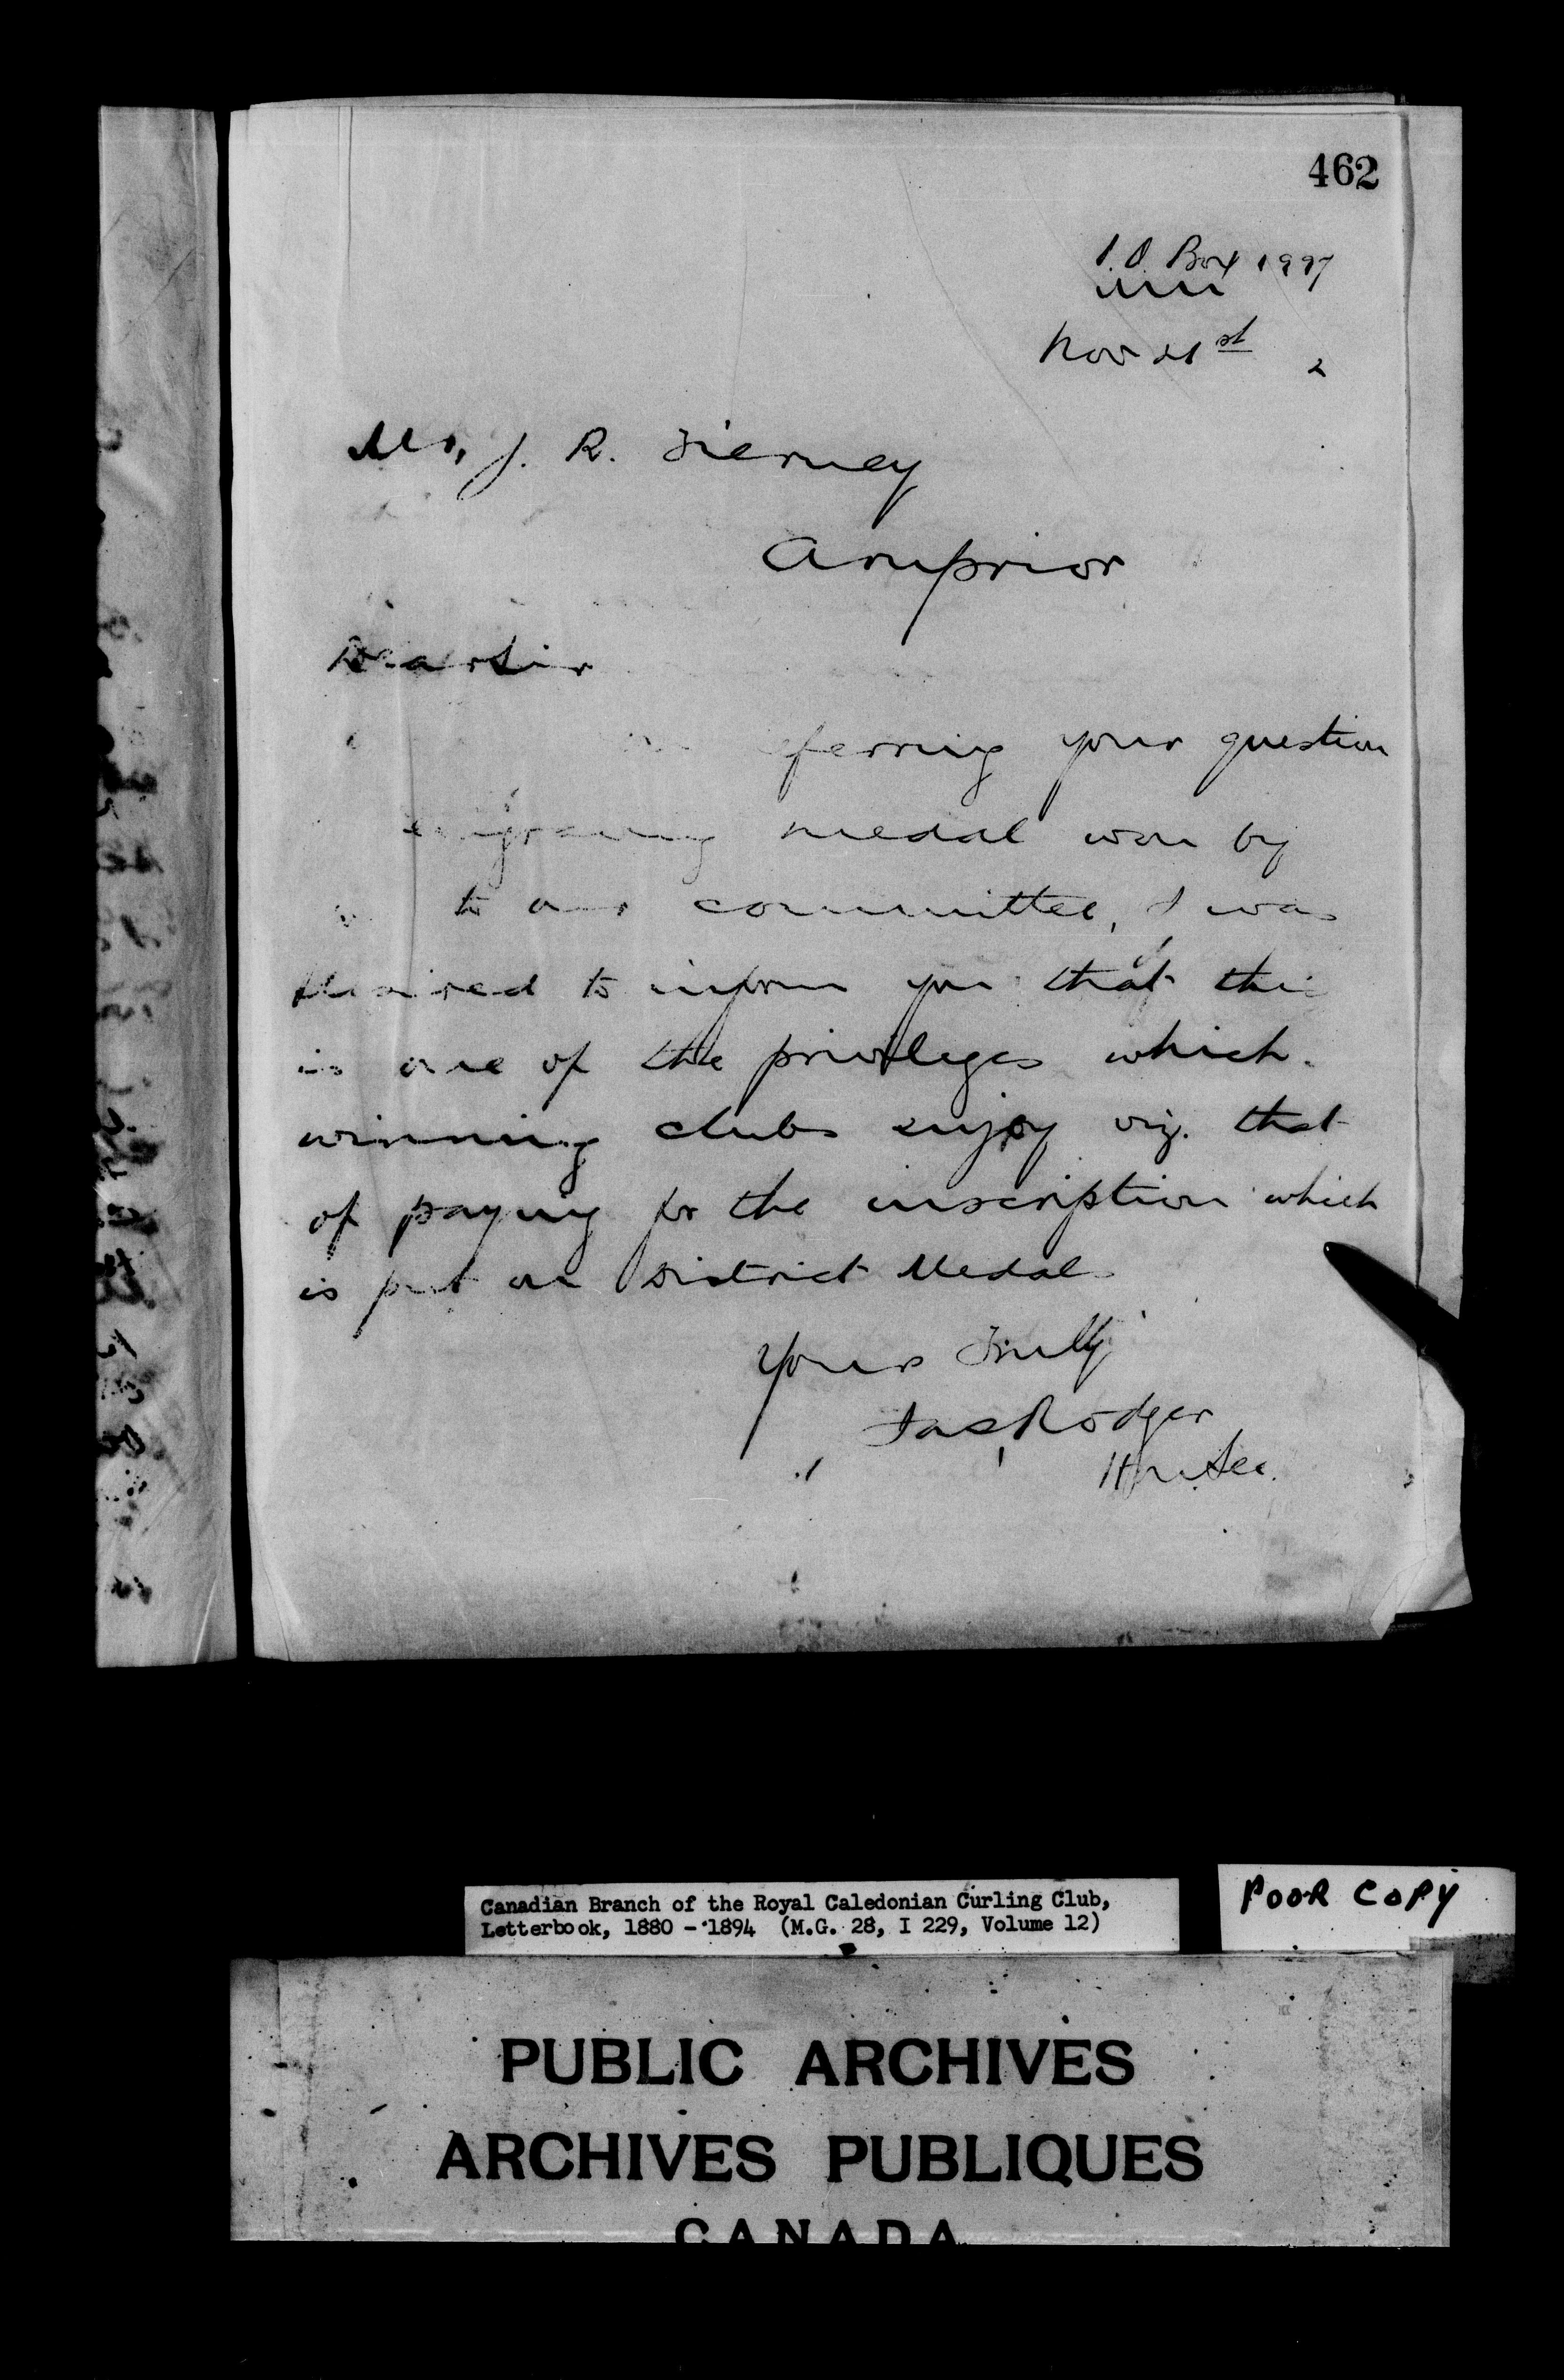 462
P.O. Box 1997
Nov 21st 2
Mr, J. R. Tierney
Arnprior
Dear Sir
ferring your question
engraving medal won by
to our committee, I was
desired to inform you that this
is one of the privileges which
winning clubs enjoy viz. that
of paying for the inscription which
is put on District Medals
Yours Truly
Jas, Rodger
Hn. Sec.
Canadian Branch of the Royal Caledonian Curling Club,
Letterbook, 1880 - 1894 (M.G. 28, I 229, Volume 12)
POOR COPY
PUBLIC ARCHIVES
ARCHIVES PUBLIQUES
CANADA